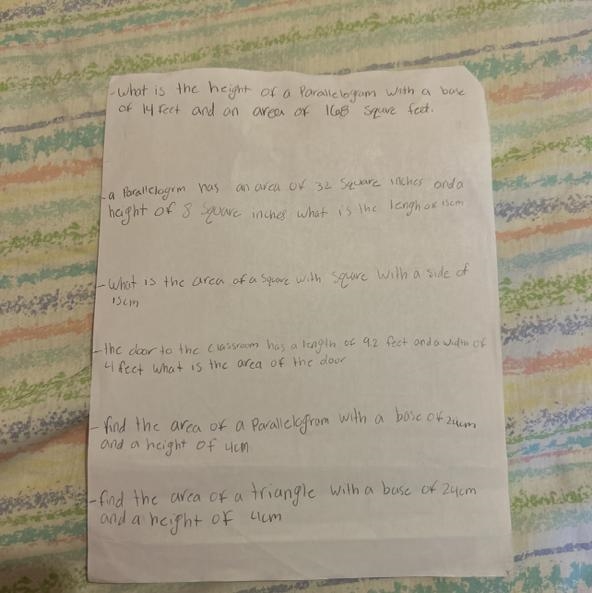 -What is the height of a Parallelogram with a base
of 14 feet and an area of 168 square feet.
-a Parallelogrm has an area of 32 square inches and a
height of 8 square inches what is the lengh of 15cm
-What is the area of a square with square with a side of
15cm
-the door to the classroom has a length of 9.2 feet and a width of
4 feet what is the area of the door
-find the area of a Parallelogram with a base of 24cm
and a height of 4cm
-find the area of a triangle with a base of 24cm
and a height of 4cm